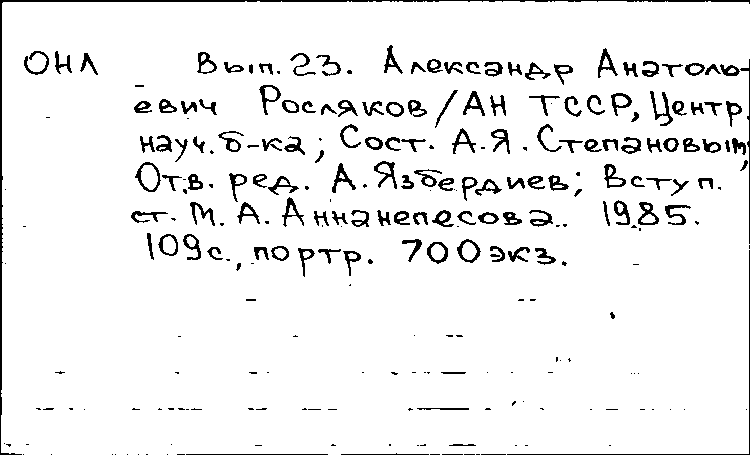 ОНЛ Вып. 23. Александр Анатоль-
евич Росляков / АН ТССР, Центр.
науч. б-ка; Сост. А.Я. Степановым,
Отв. ред. А. Язбердиев; Вступ.
ст. М. А. Аннанепесова. 1985.
109 с., портр. 700 экз.